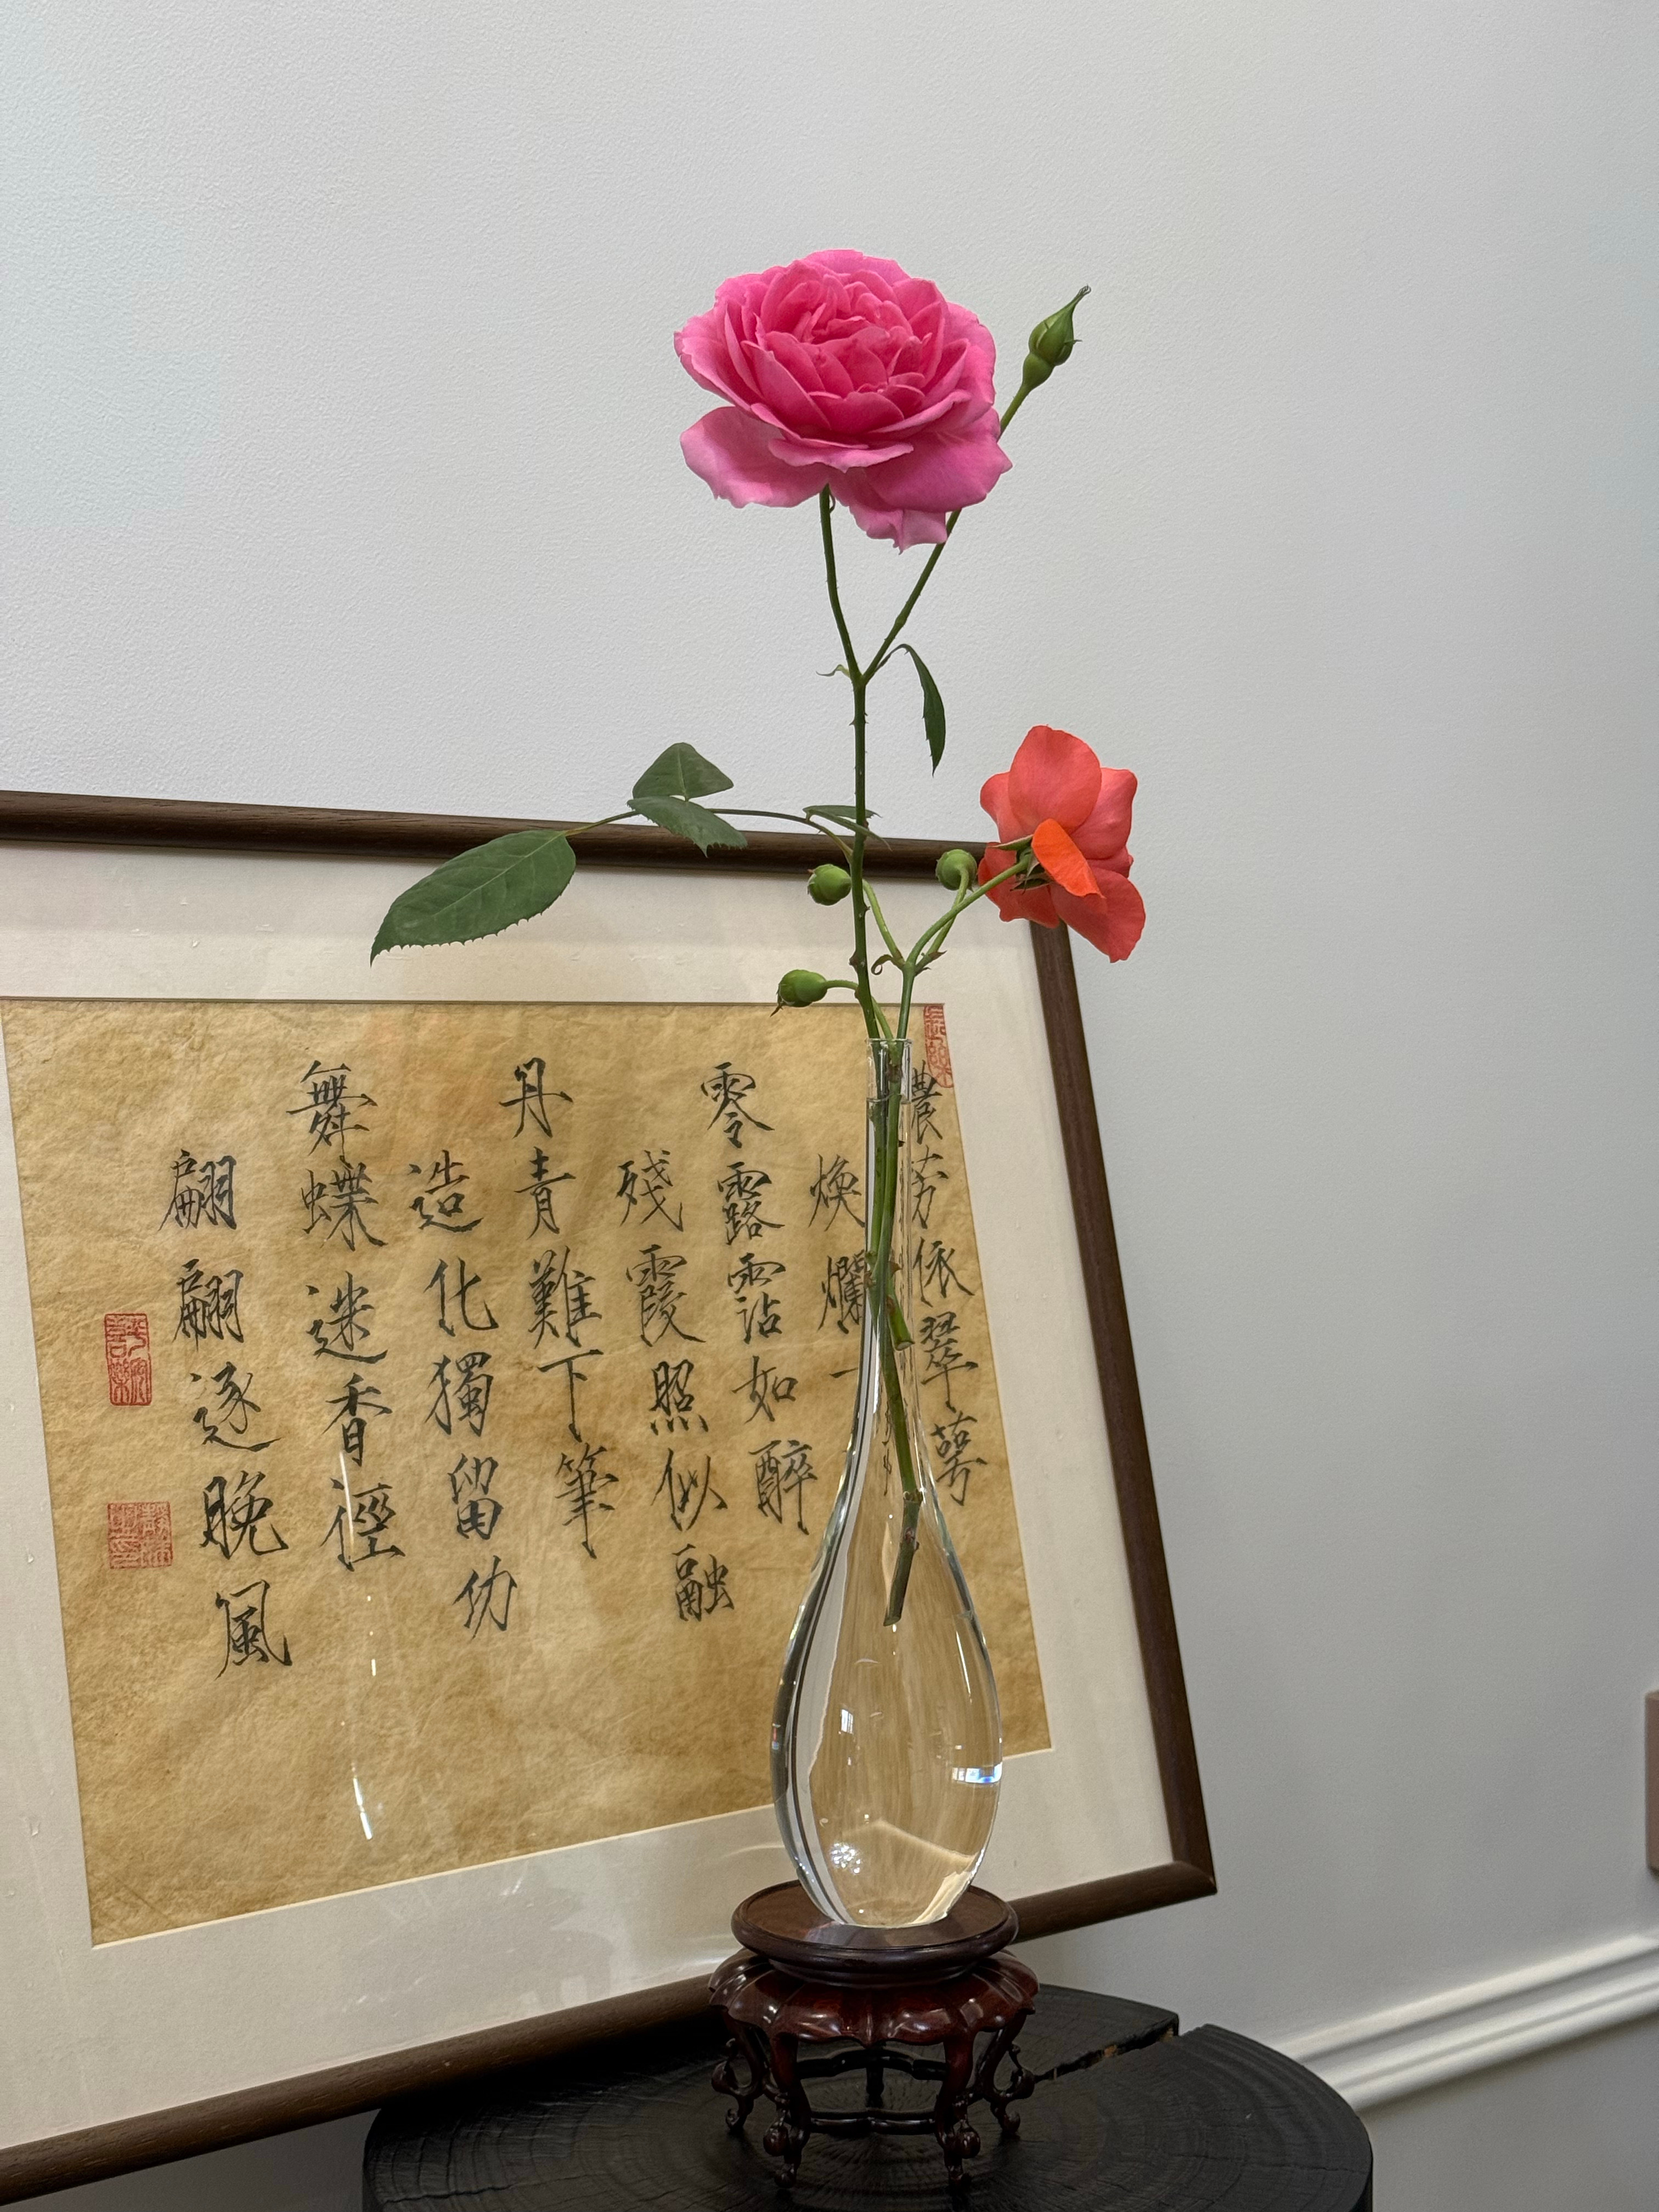 穠芳依翠萼
煥爛一
零露霑如醉
殘霞照似融
丹青難下筆
造化獨留功
舞蝶迷香徑
翩翩逐晚風